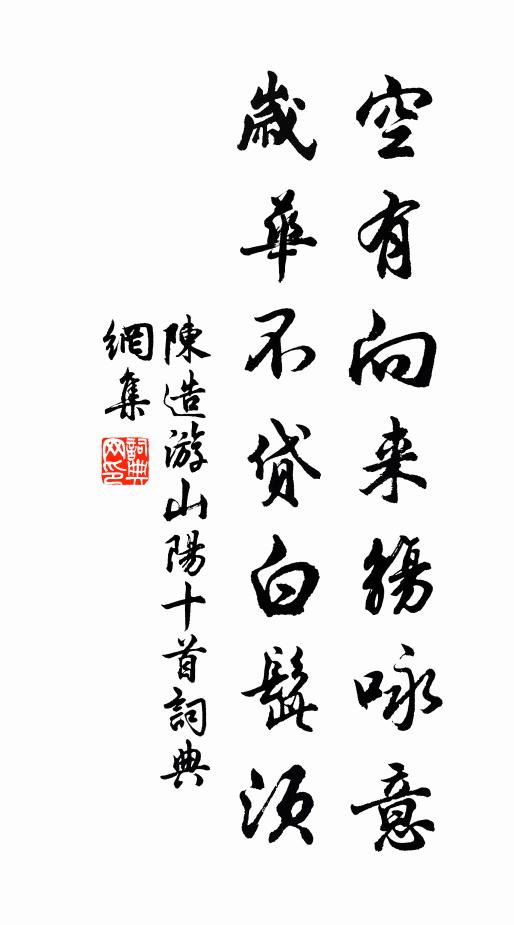 空有向来觴咏意
歲華不貸白髭須
陳造游山陽十首詞典
網集
詞典
网印